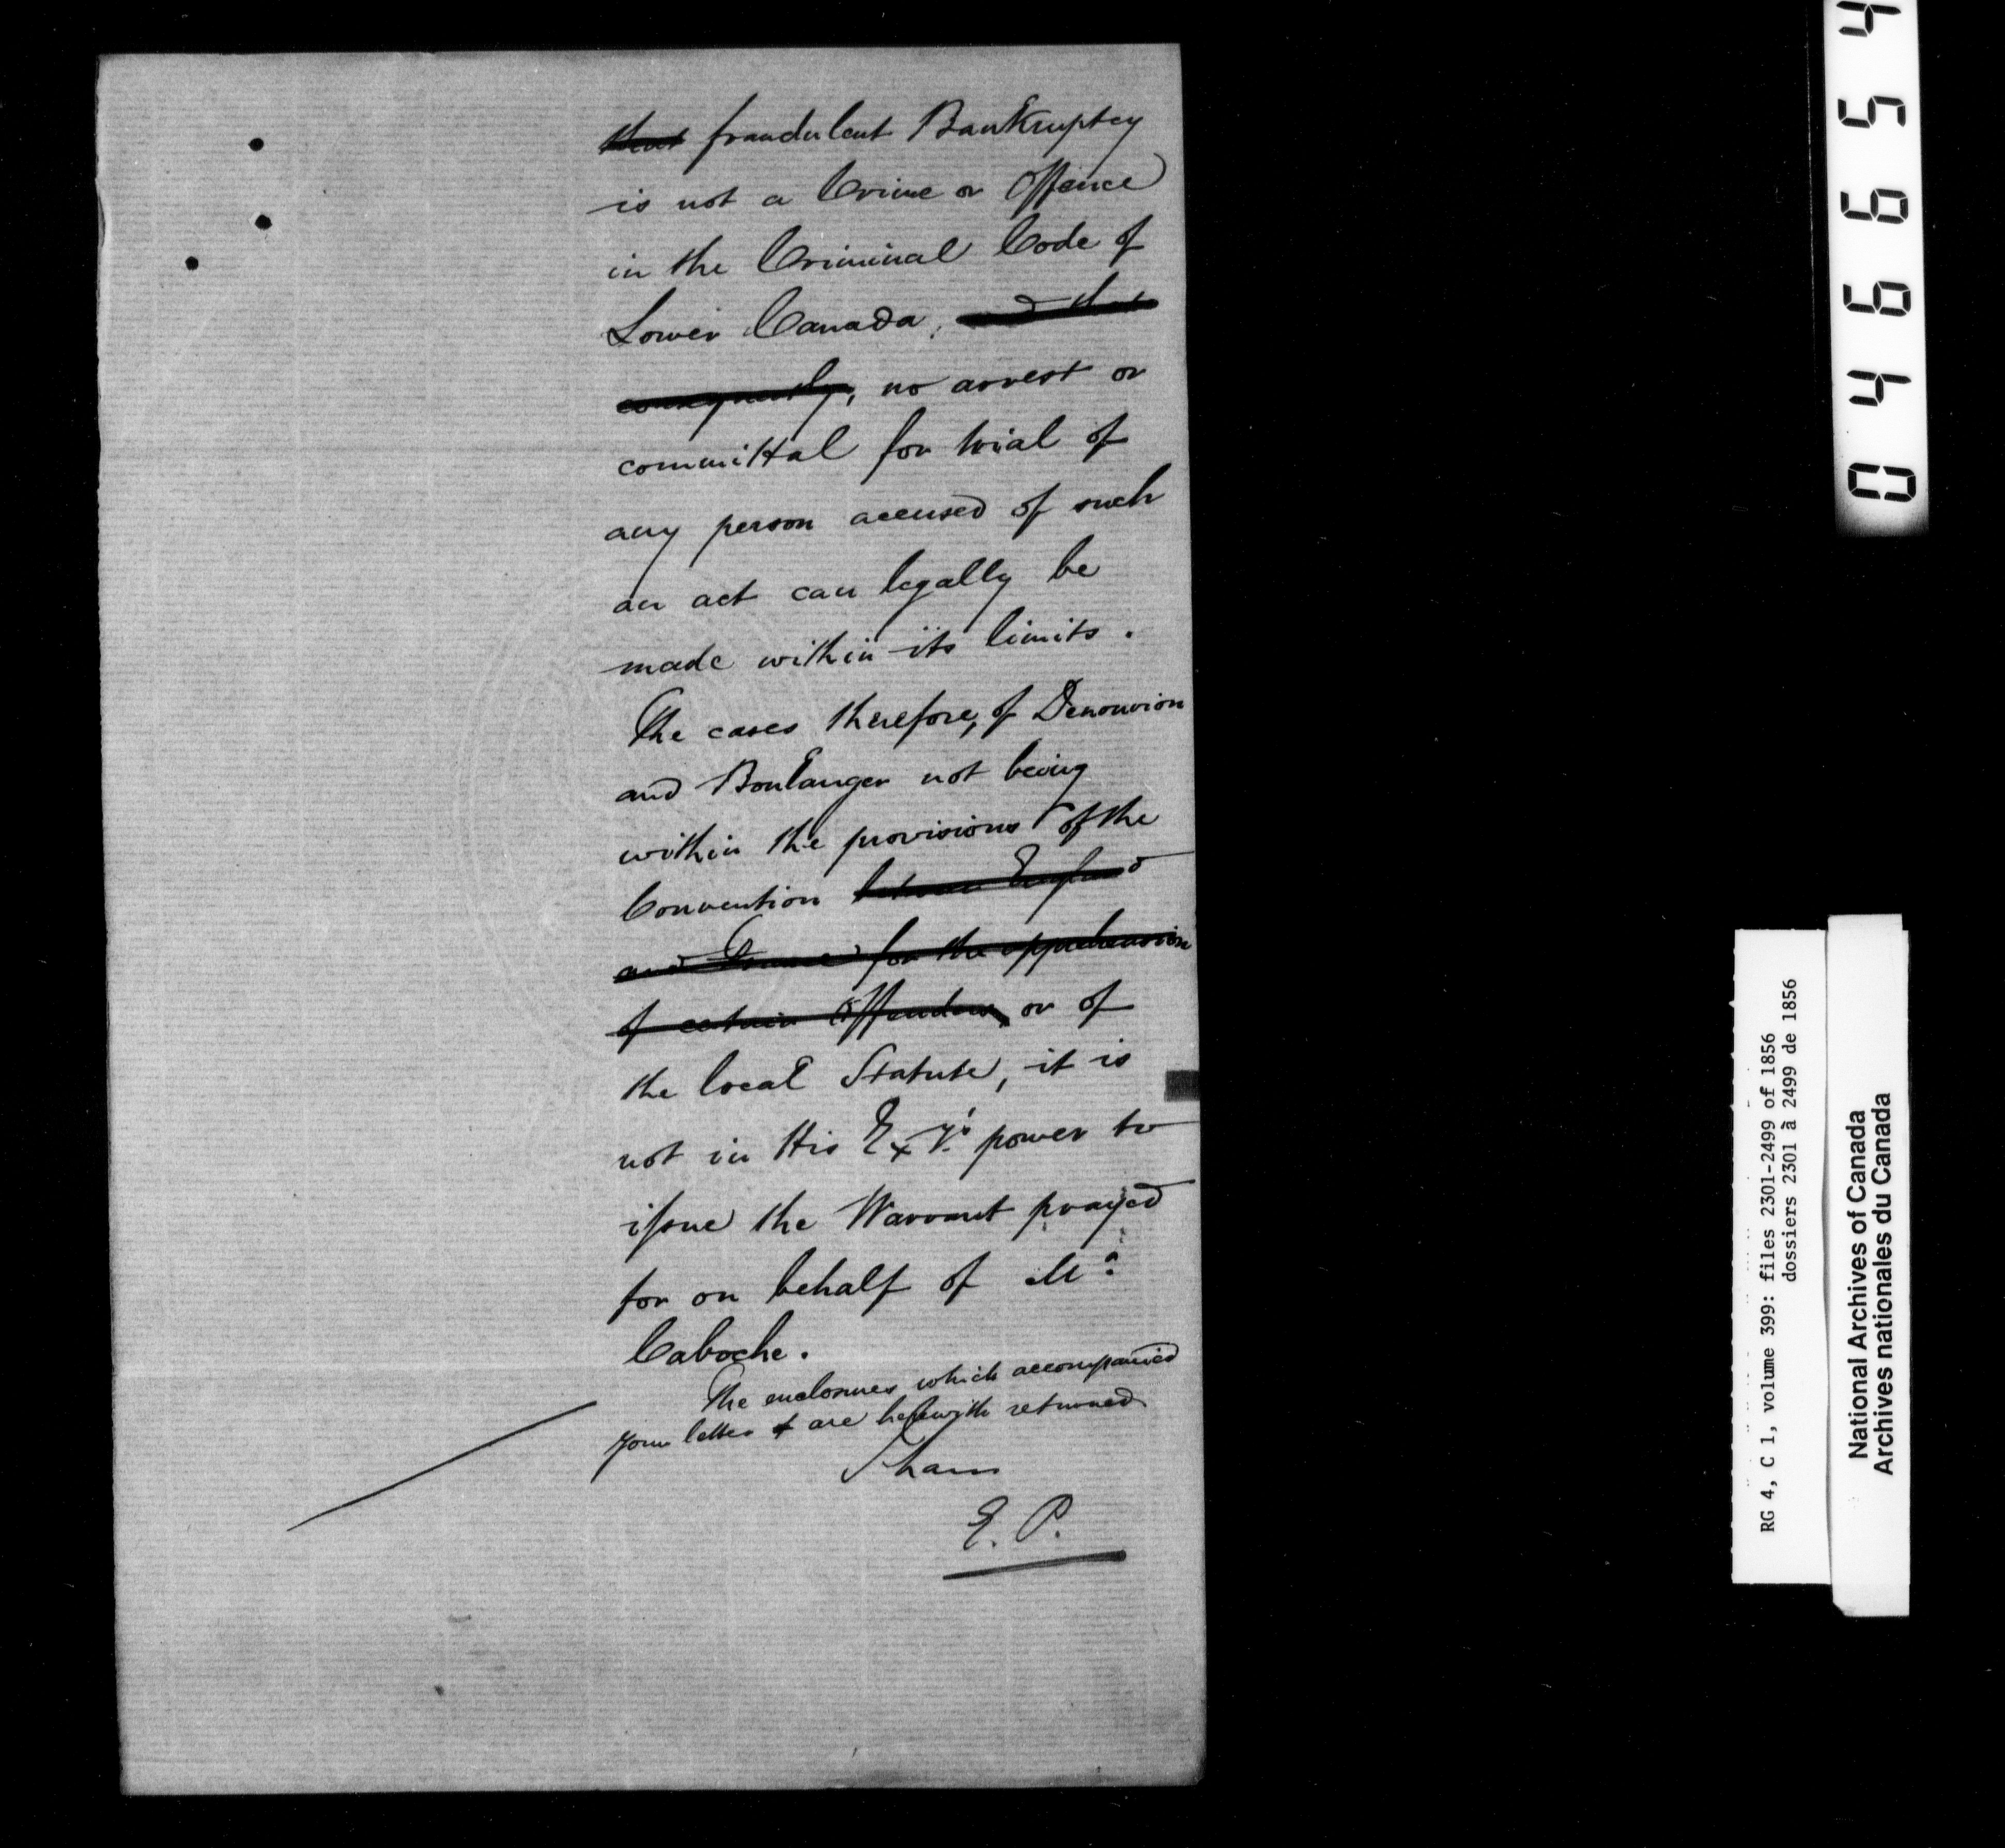 that fraudulent Bankruptcy
is not a Crime or Offence
in the Criminal Code of
Lower Canada, and that
consequently, no arrest or
committal for trial of
any person accused of such
an act can legally be
made within its limits.
The cases therefore, of Denouvion
and Boulanger not being
within the provisions of the
Convention between England
and France for the apprehension
of certain Offenders, or of
the local Statute, it is
not in His Exy's power to
issue the Warrant prayed
for on behalf of Mr
Caboche.
The enclosures which accompanied
your letter are herewith returned
I have
E. P.
046654
RG 4, C 1, volume 399: files 2301-2499 of 1856
dossiers 2301 à 2499 de 1856
National Archives of Canada
Archives nationales du Canada